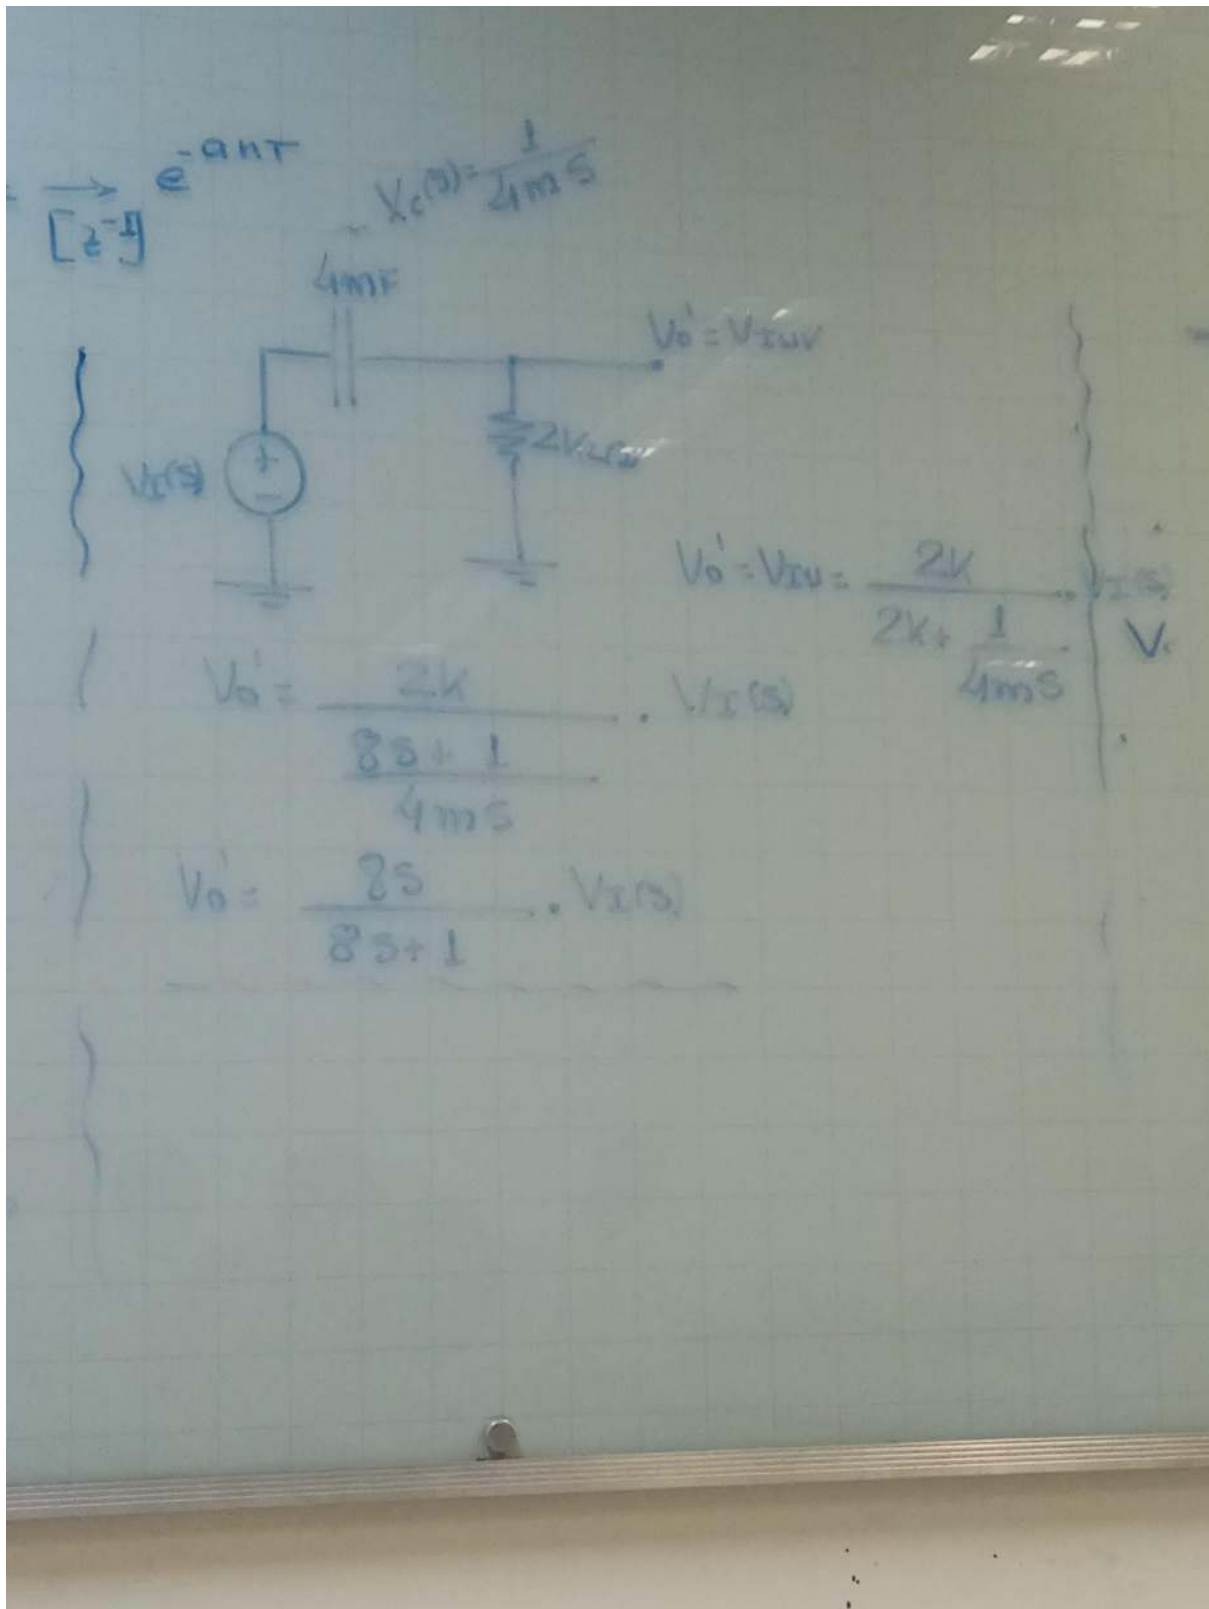 e^-anT
[z^-1]
Xc(s)= 1/4mS
4mF
Vo'=VINV
VI(s)
+
-
Vo'=VIN= 2k / 2k+ 1/4mS . VI(s)
V
Vo'= 2k / 8S+1/4mS . VI(s)
Vo'= 8S / 8S+1 . VI(s)